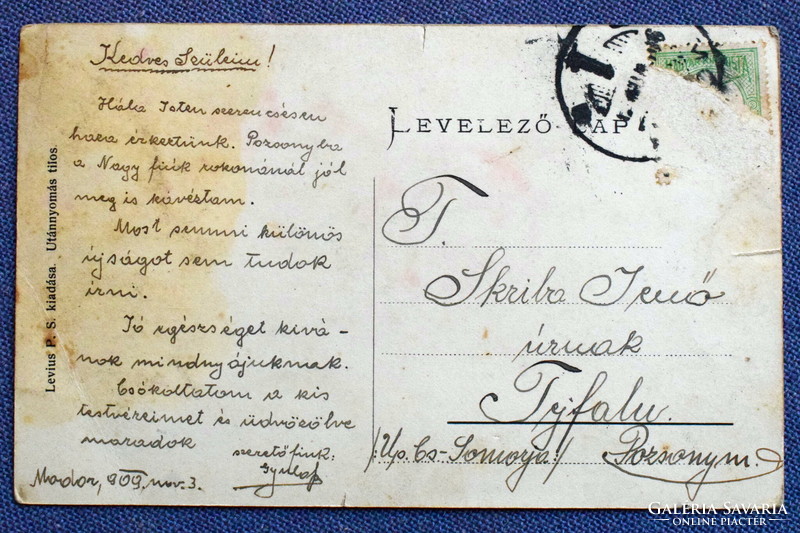 Kedves Szüleim!
Hála Isten szerencsésen
haza érkertünk. Pozsonyba
a Nagy fiúk rokonánál jól
meg is kávéztam.
Most semmi különös
újságot sem tudok
írni.
Jó egészséget kívá-
nok mindnyájuknak.
Csókoltatom a kis
testvéreimet és üdvözölve
maradok
szerető fiuk:
Gyula
Modor, 909. nov. 3.
Levius P. S. kiadása. Utánnyomás tilos.
LEVELEZŐ-LAP
T.
Skriba Jenő
úrnak
Tejfalu.
/:Up. Cs-Somorja:/ Pozsonym.
GALERIA SAVARIA
ONLINE PIACTÉR